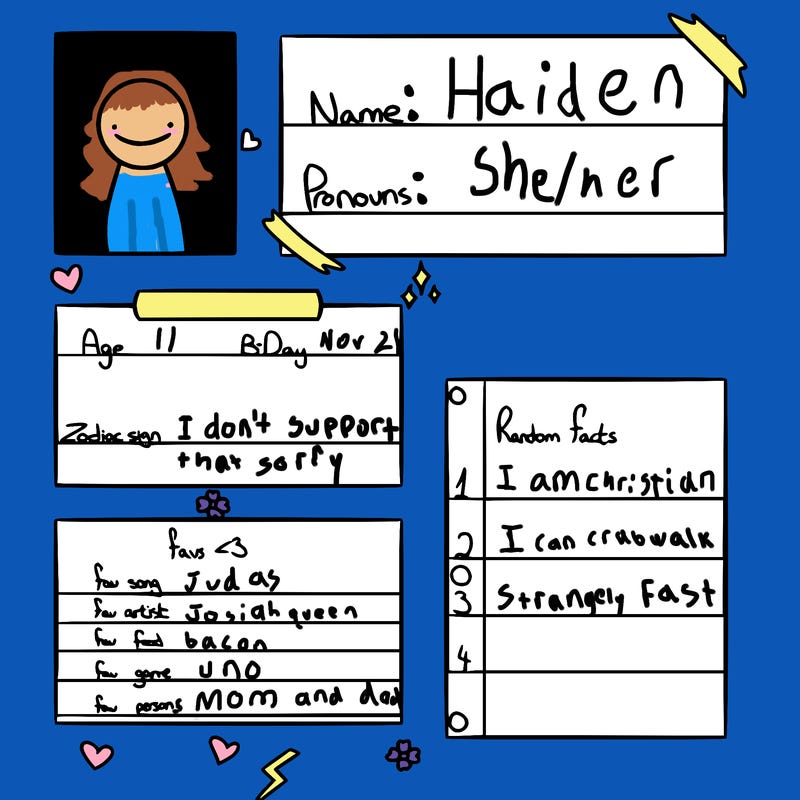 Name: Haiden
Pronouns: she/her
Age 11 B-Day Nov 21
Zodiac sign I don't support
that sorry
Random facts
1 I am christian
2 I can crabwalk
3 Strangely Fast
4
favs <3
fav song Judas
fav artist Josiah queen
fav food bacon
fav game uno
fav persons Mom and dad